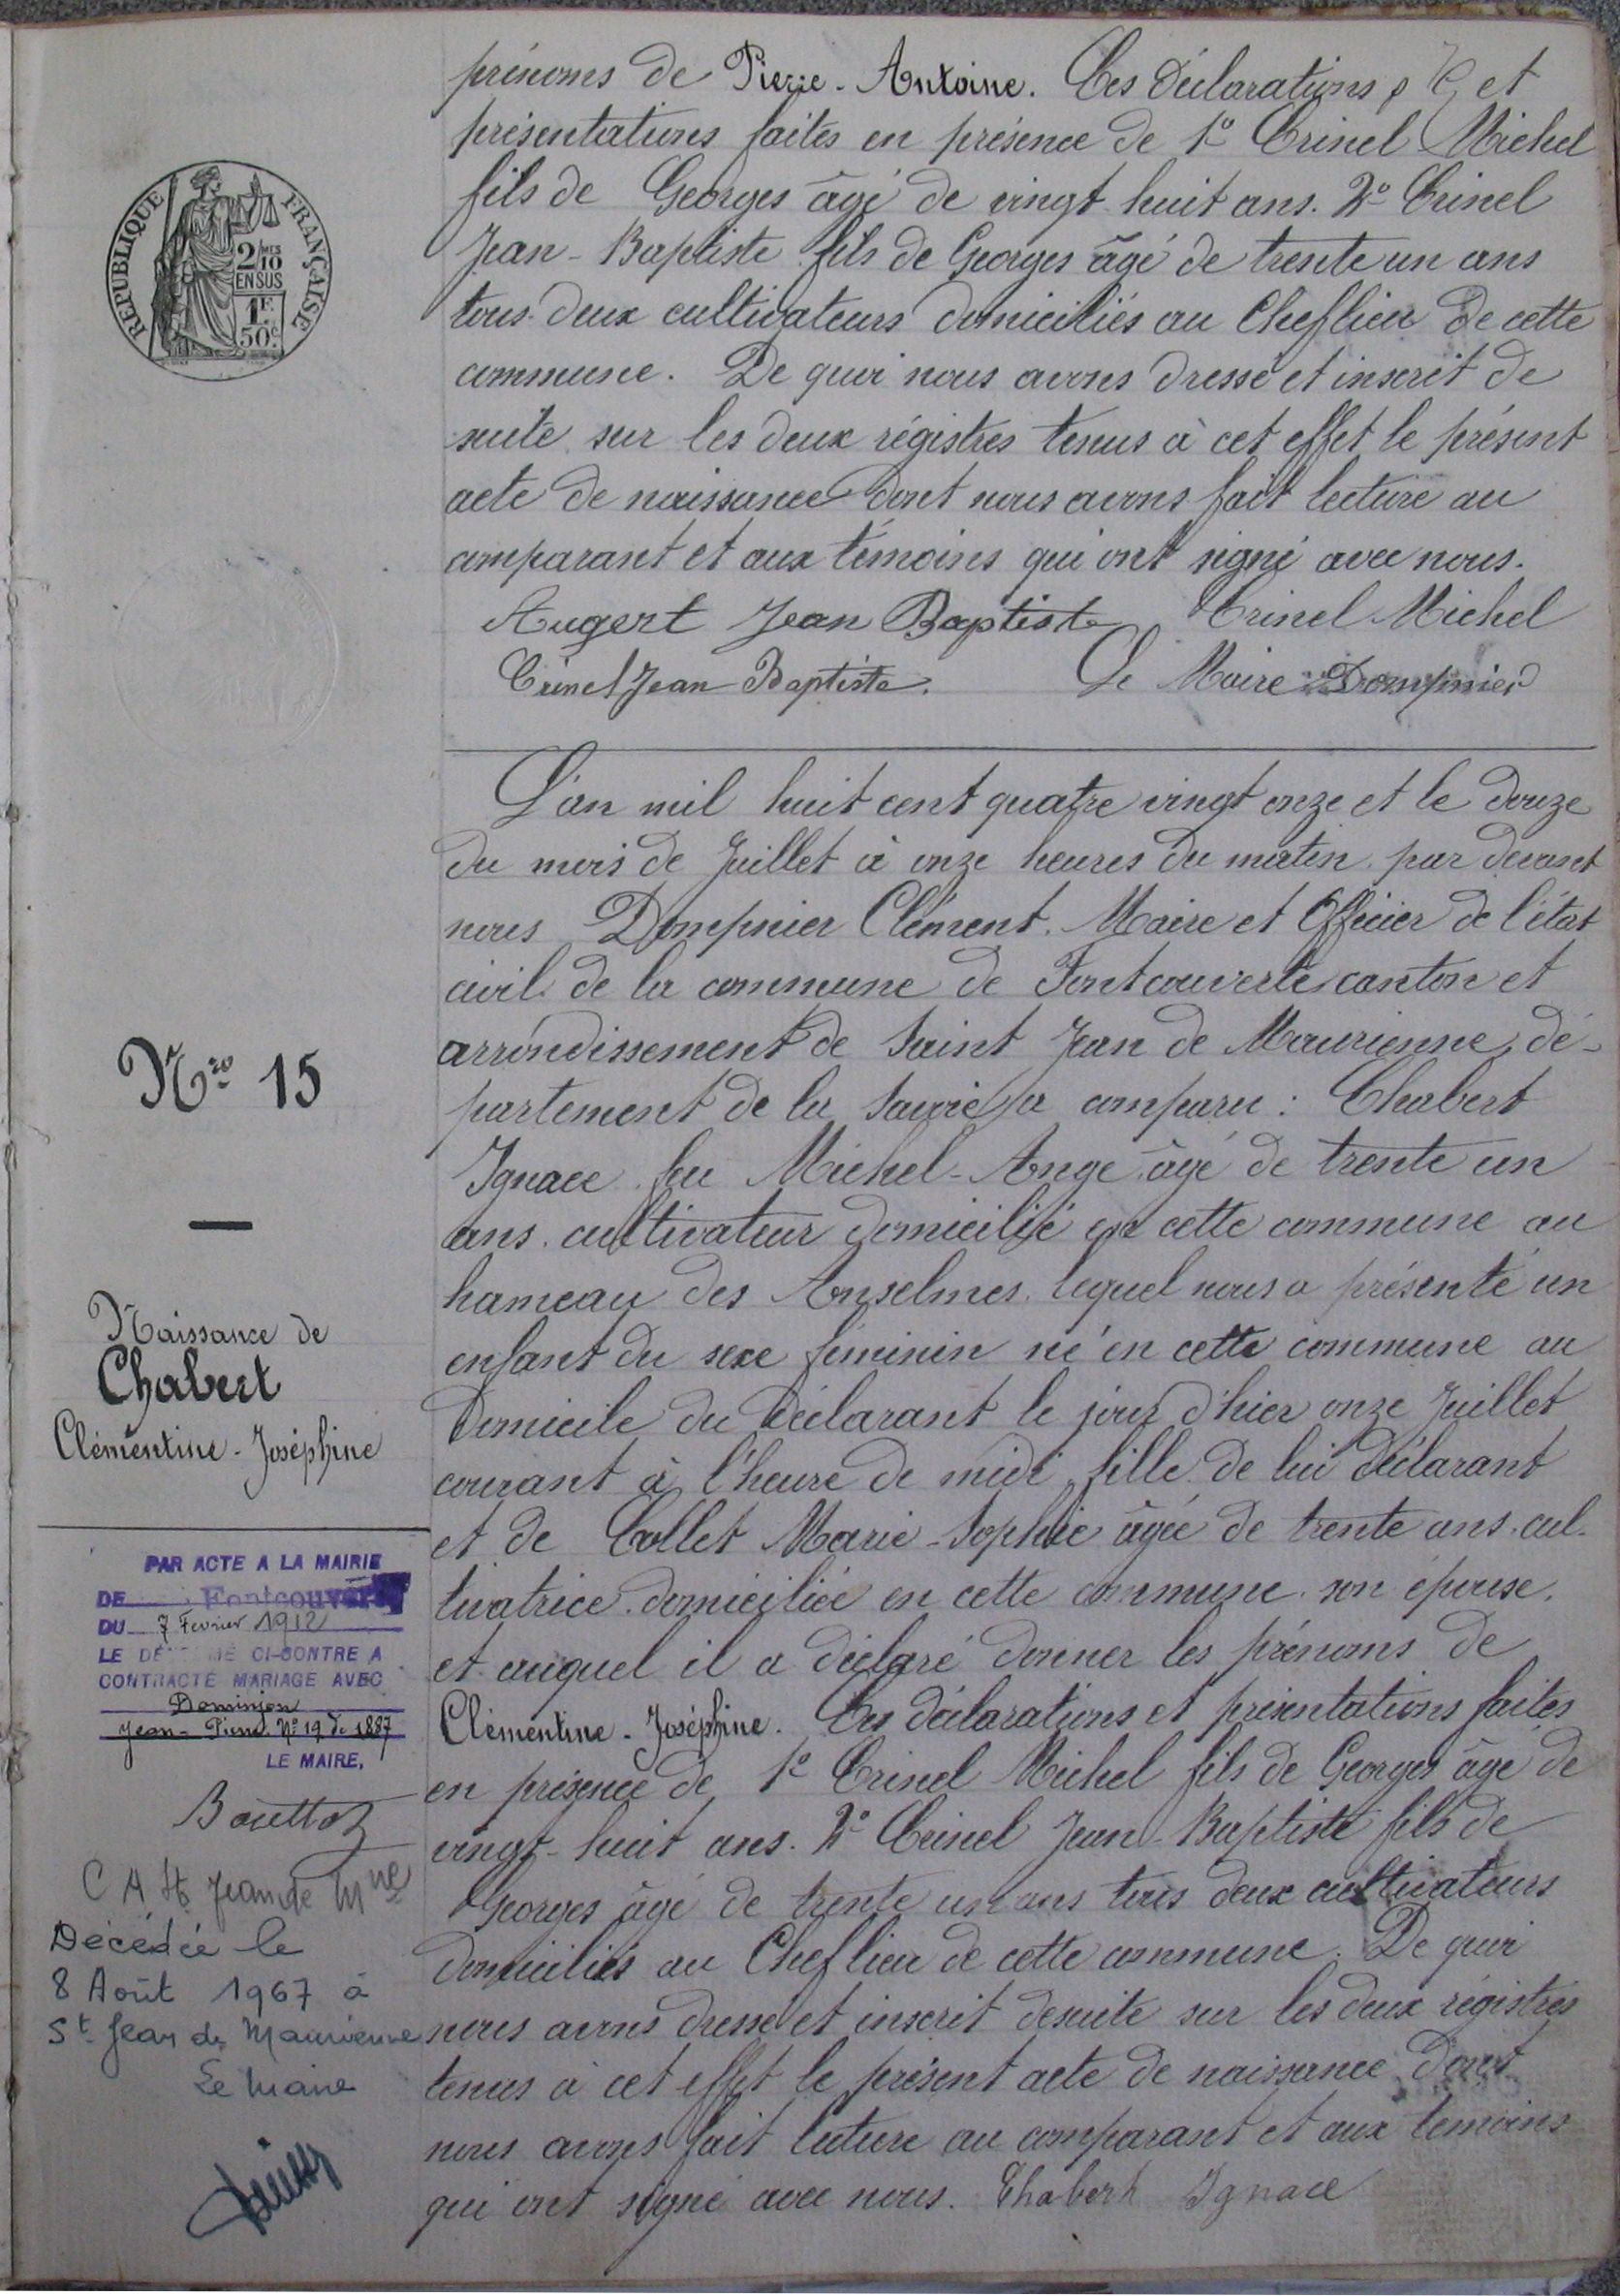 prénoms de Pierre-Antoine. Les déclarations et
présentations faites en présence de 1º Crinel Michel
fils de Georges âgé de vingt huit ans. 2º Crinel
Jean-Baptiste fils de Georges âgé de trente un ans
tous deux cultivateurs domiciliés au Cheflieu de cette
commune. De quoi nous avons dressé et inscrit de
suite sur les deux régistres tenus à cet effet le présent
acte de naissance dont nous avons fait lecture au
comparant et aux témoins qui ont signé avec nous.
Augert Jean Baptiste Crinel Michel
Crinel Jean Baptiste. Le Maire Dompnier
RÉPUBLIQUE FRANÇAISE
2/10 MES
EN SUS
1F.
50c.
Nro 15
Naissance de
Chabert
Clémentine-Joséphine
L'an mil huit cent quatre vingt onze et le douze
du mois de Juillet à onze heures du matin par devant
nous Dompnier Clément. Maire et Officier de l'état
civil de la commune de Fontcouverte canton et
arrondissement de Saint Jean de Maurienne, dé-
partement de la Savoie, a comparu : Chabert
Ignace feu Michel-Ange âgé de trente un
ans. cultivateur domicilié en cette commune au
hameau des Anselmes. lequel nous a présenté un
enfant du sexe féminin né en cette commune au
domicile du déclarant le jour d'hier onze Juillet
courant à l'heure de midi, fille de lui déclarant
et de Collet Marie-Sophie âgée de trente ans. cul-
tivatrice. domiciliée en cette commune. son épouse.
et auquel il a déclaré donner les prénoms de
Clémentine-Joséphine. Les déclarations et présentations faites
en présence de 1º Crinel Michel fils de Georges âgé de
vingt-huit ans. 2º Crinel Jean-Baptiste fils de
Georges âgé de trente un ans tous deux cultivateurs
domiciliés au Cheflieu de cette commune. De quoi
nous avons dressé et inscrit desuite sur les deux régistres
tenus à cet effet le présent acte de naissance dont
nous avons fait lecture au comparant et aux temoins
qui ont signé avec nous. Chabert Ignace
PAR ACTE A LA MAIRIE
DE Fontcouverte
DU 7 Fevrier 1912
LE DÉ MÉ CI-CONTRE A
CONTRACTÉ MARIAGE AVEC
Dominjon
Jean-Pierre Nº 19 de 1887
LE MAIRE,
Bouttaz
C A St Jean de Mne
Décédée le
8 Août 1967 à
St Jean de Maurienne
Le Maire